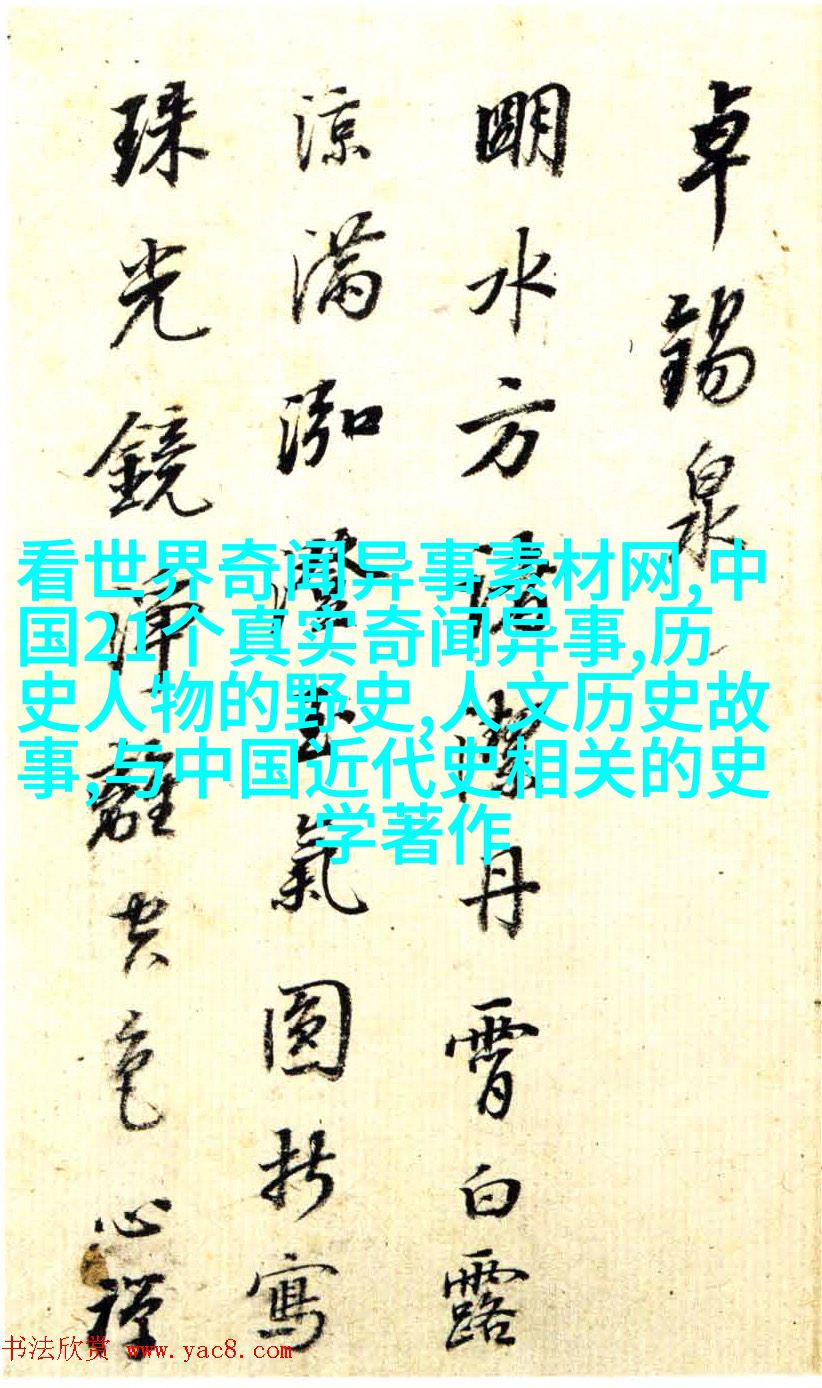 卓錫泉
明水方諸潔丹霄白露
涼滿泓玉氣圓折寫
珠光鏡離色心禪
看世界奇闻异事素材网,中
国21个真实奇闻异事,历
史人物的野史,人文历史故
事,与中国近代史相关的史
学著作
书法欣赏 www.yac8.com